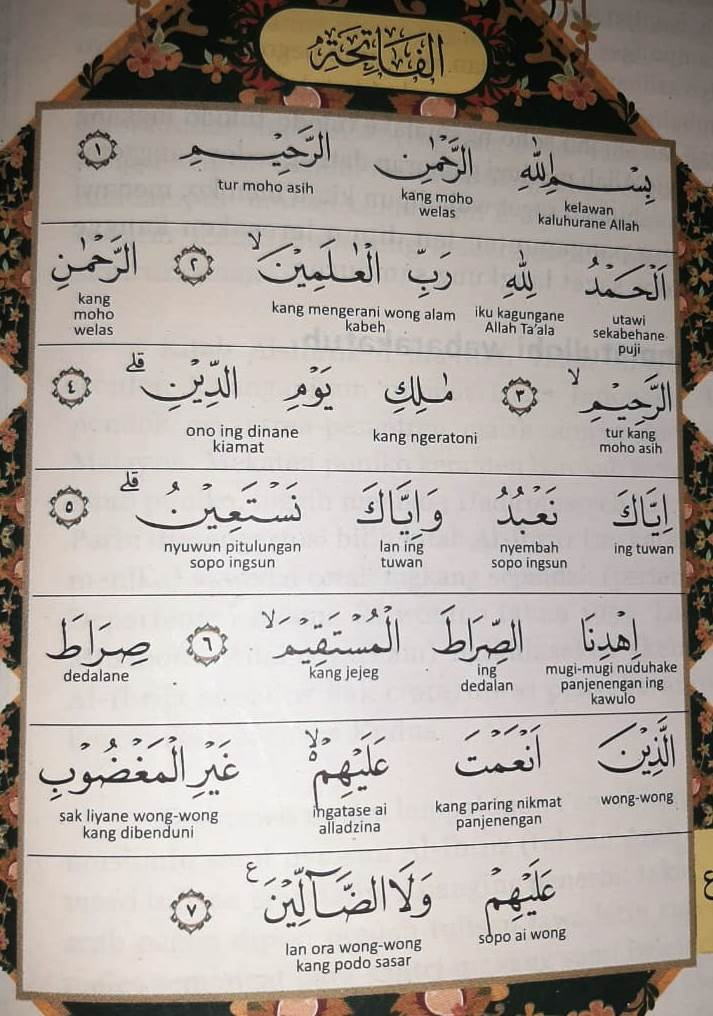 الفَاتِحَة
بِسْمِ اللّٰهِ الرَّحْمٰنِ الرَّحِيْمِ ١
kelawan kaluhurane Allah kang moho welas tur moho asih
اَلْحَمْدُ لِلّٰهِ رَبِّ الْعٰلَمِيْنَۙ ٢ الرَّحْمٰنِ
utawi sekabehane puji iku kagungane Allah Ta'ala kang mengerani wong alam kabeh kang moho welas
الرَّحِيْمِۙ ٣ مٰلِكِ يَوْمِ الدِّيْنِۗ ٤
tur kang moho asih kang ngeratoni ono ing dinane kiamat
اِيَّاكَ نَعْبُدُ وَاِيَّاكَ نَسْتَعِيْنُۗ ٥
ing tuwan nyembah sopo ingsun lan ing tuwan nyuwun pitulungan sopo ingsun
اِهْدِنَا الصِّرَاطَ الْمُسْتَقِيْمَۙ ٦ صِرَاطَ
mugi-mugi nuduhake panjenengan ing kawulo ing dedalan kang jejeg dedalane
الَّذِيْنَ اَنْعَمْتَ عَلَيْهِمْۙ غَيْرِ الْمَغْضُوْبِ
wong-wong kang paring nikmat panjenengan ingatase ai alladzina sak liyane wong-wong kang dibenduni
عَلَيْهِمْ وَلَا الضَّاۤلِّيْنَ ࣖ ٧
sopo ai wong lan ora wong-wong kang podo sasar